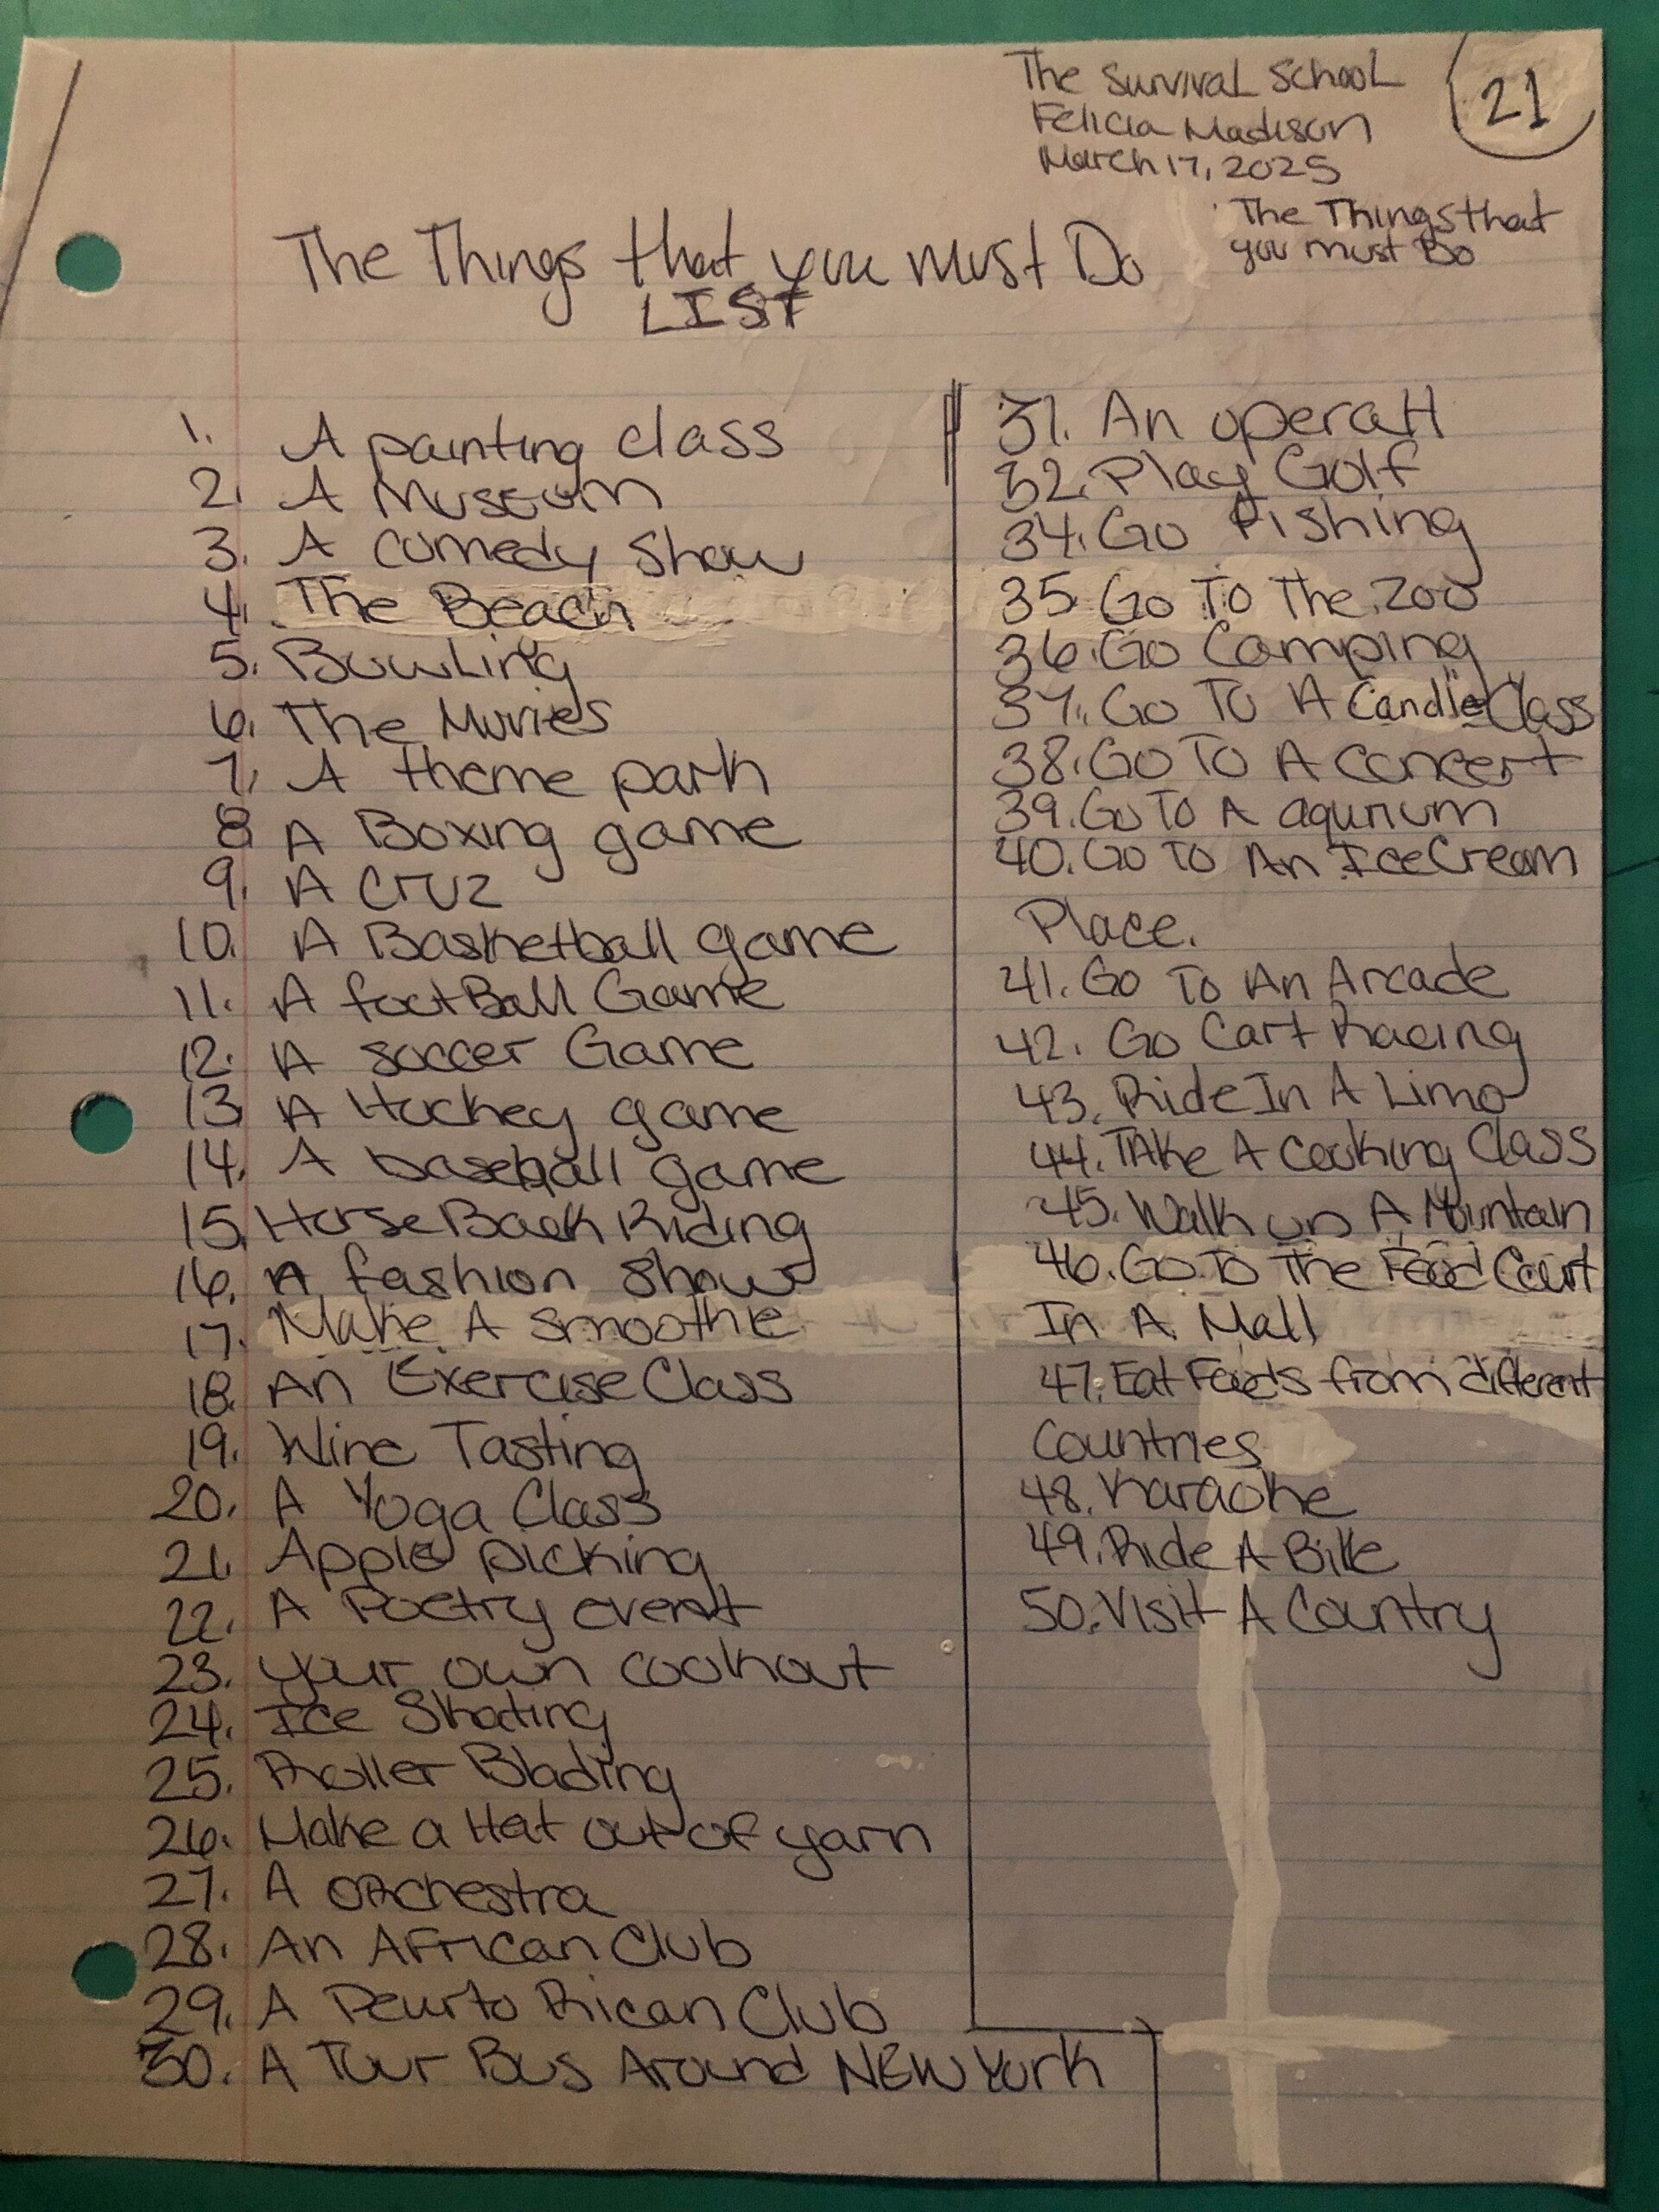 The Survival School
21
Felicia Madison
March 17, 2025
The Things that
you must Do
The Things that you must Do
LIST
1. A painting class
2. A Museum
3. A comedy show
4. The Beach
5. Bowling
6. The Movies
7. A theme park
8 A Boxing game
9. A Cruz
10. A Basketball game
11. A footBall Game
12. A soccer Game
13 A Hockey game
14. A baseball game
15. Horse Back Riding
16. A fashion show
17. Make A smoothie
18. An Exercise Class
19. Wine Tasting
20. A Yoga Class
21. Apple picking
22. A Poetry event
23. your own cookout
24. Ice Skating
25. Roller Blading
26. Make a Hat out of yarn
27. A orchestra
28. An African Club
29. A Peurto Rican Club
30. A Tour Bus Around NEW York
31. An opera
32. Play Golf
34. Go Fishing
35. Go To The Zoo
36. Go Camping
37. Go To A Candle Class
38. Go To A Concert
39. Go To A aqurium
40. Go To An Ice Cream
Place.
41. Go To An Arcade
42. Go Cart Racing
43. Ride In A Limo
44. TAke A Cooking Class
45. Walk up A Mountain
46. Go To The Food Court
In A Mall
47. Eat Foods from different
Countries
48. Karaoke
49. Ride A Bike
50. Visit A Country